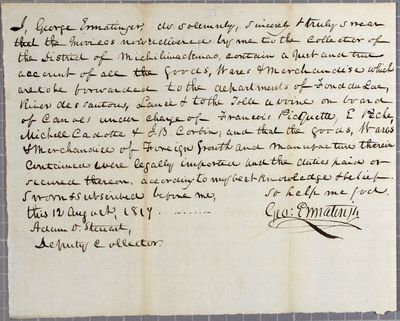 I, George Ermatinger, do solemnly, sincerely & truly swear
that the Invoices now delivered by me to the Collector of
the District of Michilimackinac, contain a just and true
account of all the Goods, Wares & Merchandise which
are to be forwarded to the departments of Fond du Lac,
River des sauteous, Lance & to the Folle avoine on board
of Canoes under charge of Francois
Michell Cadotte & J.B. Corbin; and that the goods, Wares
& Merchandise of Foreign Growth and Manufacture therein
Contained were legally imported and the duties paid or
secured thereon, according to my best Knowledge & belief.
Sworn & subscribed before me, So help me god.
this 12 August, 1817 Geo: Ermatinger
Adam D. Steuart,
Deputy Collector.